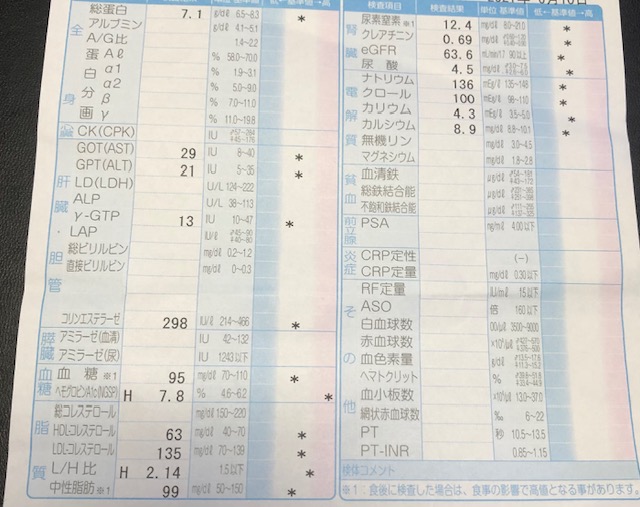 総蛋白 7.1 g/dℓ 6.5~8.3 *
アルブミン g/dℓ 4.1~5.1
A/G比 1.4~2.2
全身
蛋白分画
Aℓ % 58.0~70.0
α1 % 1.9~3.1
α2 % 5.0~9.0
β % 7.0~11.0
γ % 11.0~19.8
CK(CPK) IU
GOT(AST) 29 IU 8~40 *
GPT(ALT) 21 IU 5~35 *
肝臓
LD(LDH) U/L 124~222
ALP U/L 38~113
γ-GTP 13 IU 10~47 *
LAP IU/ℓ
胆管
総ビリルビン mg/dℓ 0.2~1.2
直接ビリルビン mg/dℓ 0~0.3
コリンエステラーゼ 298 IU/ℓ 214~466 *
膵臓
アミラーゼ(血清) IU 42~132
アミラーゼ(尿) IU 1243以下
血糖
血糖 ※1 95 mg/dℓ 70~110 *
ヘモグロビンA1c(NGSP) H 7.8 % 4.6~6.2 *
脂質
総コレステロール mg/dℓ 150~220
HDL-コレステロール 63 mg/dℓ 40~70 *
LDL-コレステロール 135 mg/dℓ 70~139 *
L/H比 H 2.14 1.5以下 *
中性脂肪 ※1 99 mg/dℓ 50~150 *
検査項目 検査結果 単位 基準値 低←基準値→高
腎臓
尿素窒素 ※1 12.4 mg/dℓ 8.0~21.0 *
クレアチニン 0.69 mg/dℓ *
eGFR 63.6 mL/min/1.7 90以上 *
尿酸 4.5 mg/dℓ *
電解質
ナトリウム 136 mEq/ℓ 135~148 *
クロール 100 mEq/ℓ 96~110 *
カリウム 4.3 mEq/ℓ 3.5~5.0 *
カルシウム 8.9 mg/dℓ 8.8~10.1 *
無機リン mg/dℓ 3.0~4.5
マグネシウム mg/dℓ 1.8~2.8
貧血
血清鉄 μg/dℓ
総鉄結合能 μg/dℓ
不飽和鉄結合能 μg/dℓ
前立腺
PSA ng/mℓ 4.00以下
炎症
CRP定性 (-)
CRP定量 mg/dℓ 0.30以下
その他
RF定量 IU/mℓ 15以下
ASO 倍 160以下
白血球数 /μℓ 3500~9000
赤血球数
血色素量 g/dℓ
ヘマトクリット %
血小板数 13.0~37.0
網状赤血球数 ‰ 6~22
PT 秒 10.5~13.5
PT-INR 0.85~1.15
検体コメント
※1:食後に検査した場合は、食事の影響で高値となる事があります。